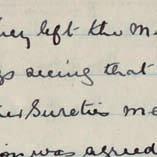 they left the M
seeing that
Sureties
was agreed